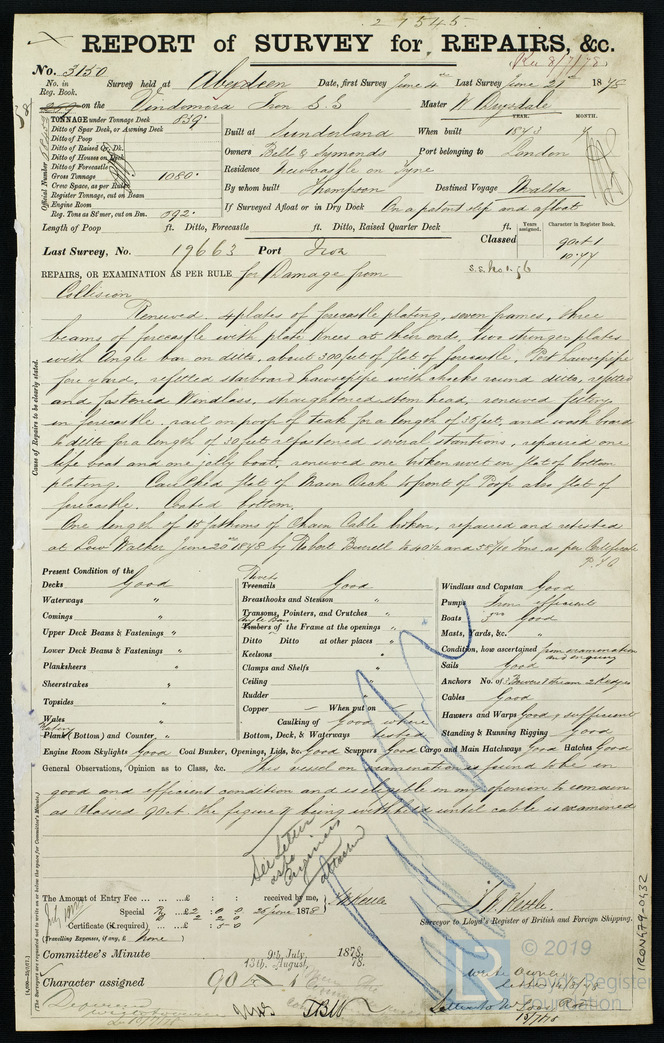 21545
REPORT of SURVEY for REPAIRS, &c.
Rec 8/7/78
No. 3150 Survey held at Aberdeen Date, first Survey June 4th Last Survey June 21st 1878
No. in Reg. Book.
on the Vindomora Iron S.S Master W. Drysdale
TONNAGE under Tonnage Deck 839.
Ditto of Spar Deck, or Awning Deck
Ditto of Poop
Ditto of Raised Qr. Dk.
Ditto of Houses on Deck
Ditto of Forecastle
Gross Tonnage 1080.
Crew Space, as per Rule
Register Tonnage, cut on Beam
Engine Room
Reg. Tons as St'mer, cut on Bm. 692.
Official Number
YEAR. MONTH.
Built at Sunderland When built 1873 7
Owners Bell & Symonds Port belonging to London
Residence Newcastle on Tyne
By whom built Thompson Destined Voyage Malta
If Surveyed Afloat or in Dry Dock On a patent slip and afloat
Length of Poop ft. Ditto, Forecastle ft. Ditto, Raised Quarter Deck ft.
Years assigned. Character in Register Book.
Last Survey, No. 19663 Port Iron Classed 90A1
10.77
S.S. No 1. 76
REPAIRS, OR EXAMINATION AS PER RULE for Damage from
Collision
Renewed. 4 plates of forecastle plating, seven frames, three
beams of forecastle with plate knees at their ends, two stringer plates
with Angle bar on ditto, about 300 feet of flat of forecastle, Port hawsepipe
fore yard, refitted starboard hawsepipe with chocks round ditto, refitted
and fastened Windlass, straightened stem head, renewed fitting
in forecastle. rail on poop of teak for a length of 30 feet, and wash board
to ditto for a length of 30 feet refastened several stantions, repaired one
life boat and one jolly boat, renewed one broken rivet in flat of bottom
plating. Caulked flat of Main Deck to front of Poop also flat of
forecastle. Coated bottom.
One length of 15 fathoms of Chain Cable broken, repaired and retested
at Low Walker June 20th 1878 by Robert Burrell to 40 1/2 and 58 7/10 Tons as per Certificate
P.T.O
Cause of Repairs to be clearly stated.
Present Condition of the
Decks Good
Waterways "
Comings "
Upper Deck Beams & Fastenings "
Lower Deck Beams & Fastenings "
Planksheers "
Sheerstrakes "
Topsides "
Wales "
Plating Plank (Bottom) and Counter "
Rivets Treenails Good
Breasthooks and Stemson "
Transoms, Pointers, and Crutches "
Angle Bars Timbers of the Frame at the openings "
Ditto Ditto at other places "
Keelsons "
Clamps and Shelfs "
Ceiling "
Rudder "
Copper — When put on —
Caulking of Good where
Bottom, Deck, & Waterways tested
Windlass and Capstan Good
Pumps Iron efficient
Boats Good
Masts, Yards, &c. "
Condition, how ascertained from examination and enquiry
Sails Good
Anchors No. of 3 Bowers 1 stream 2 Kedges
Cables Good
Hawsers and Warps Good & sufficient
Standing & Running Rigging Good
Engine Room Skylights Good Coal Bunker, Openings, Lids, &c. Good Scuppers Good Cargo and Main Hatchways Good Hatches Good
General Observations, Opinion as to Class, &c. This vessel on examination is found to be in
good and efficient condition and is eligible in my opinion to remain
as classed 90A1. The figure 1 being withheld until cable is examined
See Letter
as to
Engineers
attached
The Amount of Entry Fee ... ... £ : : received by me,
Special ... £2 : 0 : 0 26 June 1878
Certificate (if required) ... : 5 : 0
(Travelling Expenses, if any, £ None )
Surveyor to Lloyd's Register of British and Foreign Shipping.
Committee's Minute 9th July, 1878.
13th August, 78.
Character assigned 90 A 1
Write Owner
Letter to
13/7/78
© 2019
Lloyd's Register
Foundation
IRON479-0432